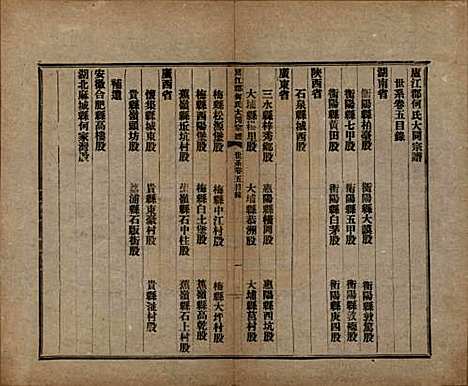 廬江郡何氏大同宗譜
世系卷五目錄
湖南省
衡陽縣柏薈股 衡陽縣大議股 衡陽縣敦篤股
衡陽縣七甲股 衡陽縣五甲股 衡陽縣敦穆股
衡陽縣黄田股 衡陽縣白茅股 衡陽縣庚四股
陝西省
石泉縣城西股
廣東省
三水縣梓秀鄉股 惠陽縣橫岡股 惠陽縣西坑股
大埔縣桂里股 大埔縣恭洲股 大埔縣莒村股
廬江郡何氏大同宗譜 世系卷五目錄 一
梅縣松源堡股 梅縣中江村股 梅縣大坪村股
梅縣西陽堡股 梅縣白土堡股 蕉嶺縣高乾股
蕉嶺縣坵坑村股 蕉嶺縣石中柱股 蕉嶺縣石上村股
廣西省
懷集縣城廂股 貴縣東龍村股 貴縣 村股
貴縣嶺頭坊股 荔浦縣石版街股
補遺
安徽合肥縣高橋股
湖北麻城縣何家灣股